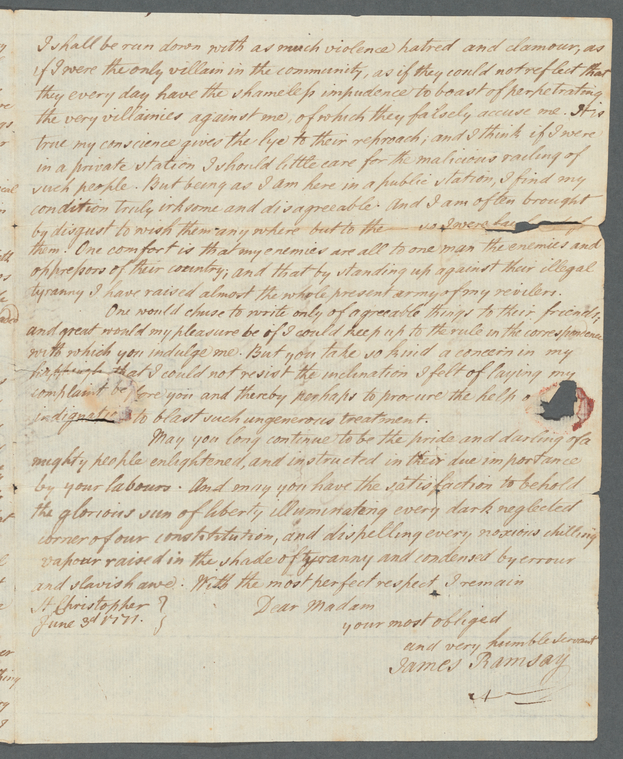 I shall be run down with as much violence hatred and clamour, as
if I were the only villain in the community, as if they could not reflect that
they every day have the shameless impudence to boast of perpetrating
the very villainies against me, of which they falsely accuse me. It is
true my conscience gives the lye to their reproach; and I think if I were
in a private station I should little care for the malicious railing of
such people. But being as I am here in a public station, I find my
condition truly irksome and disagreeable. And I am often brought
by disgust to wish them any where but to the so I were
them. One comfort is that my enemies are all to one man the enemies and
oppressors of their country; and that by standing up against their illegal
tyranny I have raised almost the whole present army of my revilers.
One would chuse to write only of agreeable things to their friends,
and great would my pleasure be if I could keep up to the rule in the correspondence
with which you indulge me. But you take so kind a concern in my
that I could not resist the inclination I felt of laying my
complaint before you and thereby perhaps to procure the help
indignation to blast such ungenerous treatment.
May you long continue to be the pride and darling of a
mighty people enlightened, and instructed in their due importance
by your labours. And may you have the satisfaction to behold
the glorious sun of liberty illuminating every dark neglected
corner of our constitution, and dispelling every noxious chilling
vapour raised in the shade of tyranny and condensed by errour
and slavish awe. With the most perfect respect I remain
St Christopher Dear Madam
June 3d 1771. your most obliged
and very humble servant
James Ramsay